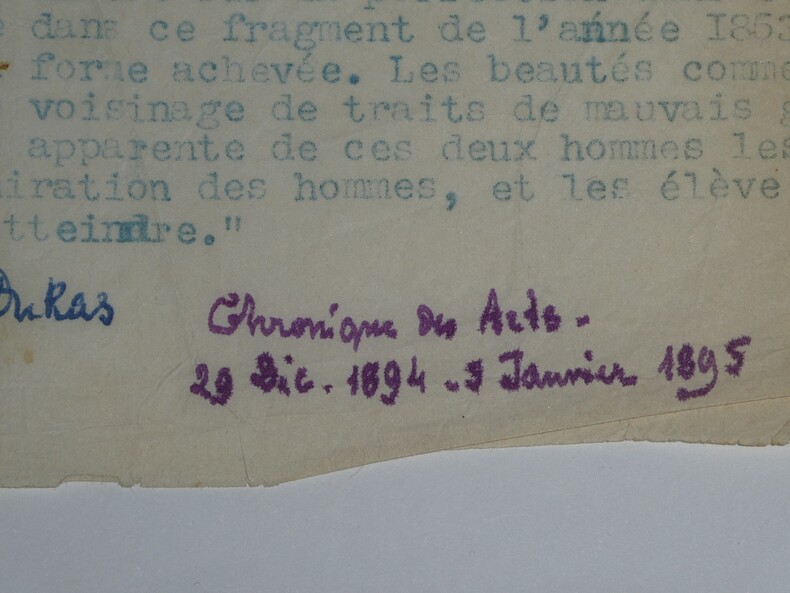 dans ce fragment de l'année I853
forme achevée. Les beautés comme
voisinage de traits de mauvais
apparente de ces deux hommes les
iration des hommes, et les élève
tteindre."
Dukas
Chronique des Arts -
29 Dic. 1894 - 3 Janvier 1895